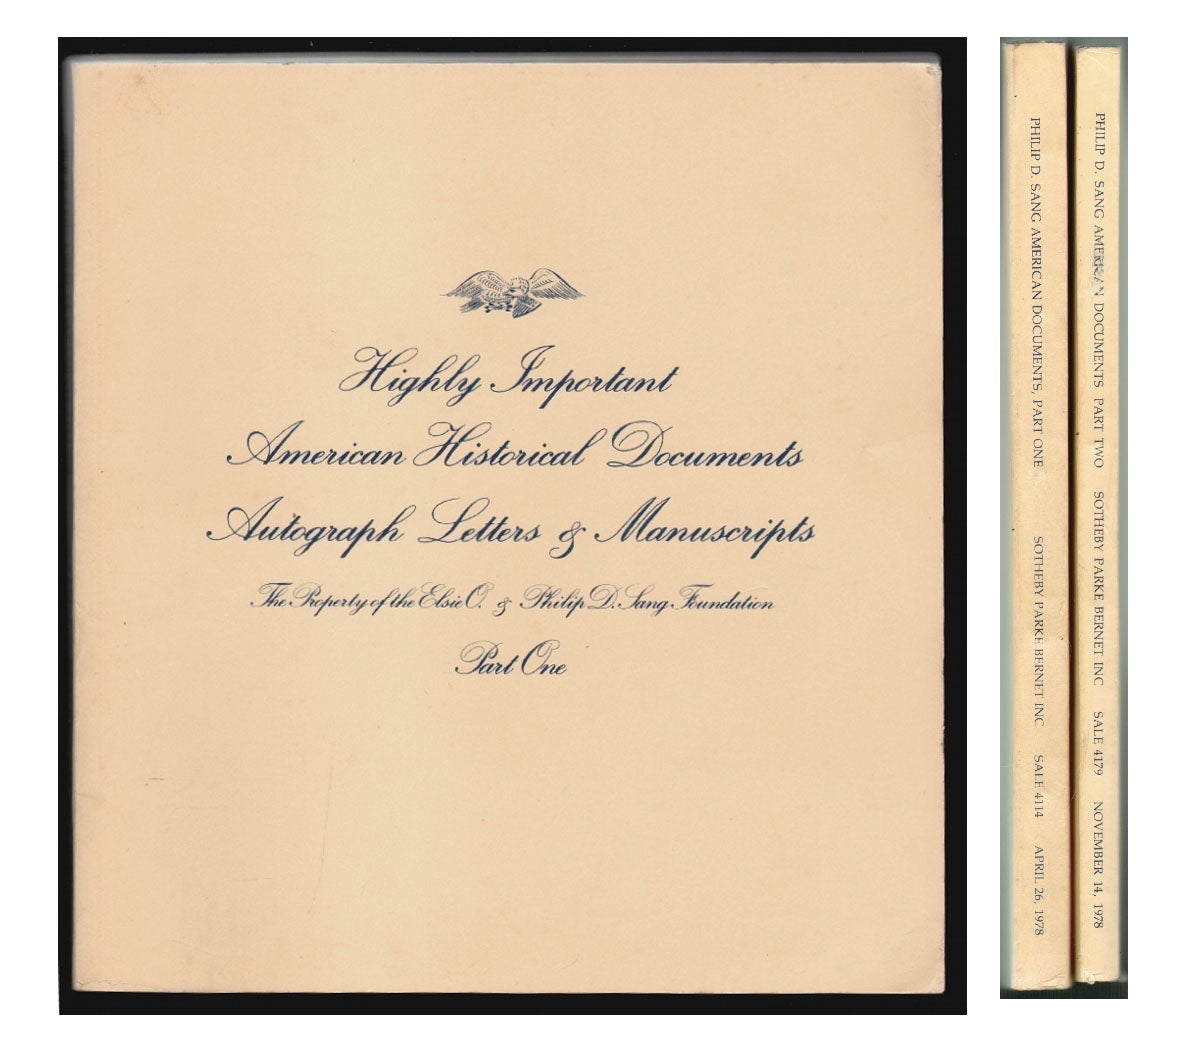 Highly Important
American Historical Documents
Autograph Letters & Manuscripts
The Property of the Elsie O. & Philip D. Sang Foundation
Part One
PHILIP D. SANG AMERICAN DOCUMENTS, PART ONE SOTHEBY PARKE BERNET INC SALE 4114 APRIL 26, 1978
PHILIP D. SANG AMERICAN DOCUMENTS PART TWO SOTHEBY PARKE BERNET INC SALE 4179 NOVEMBER 14, 1978